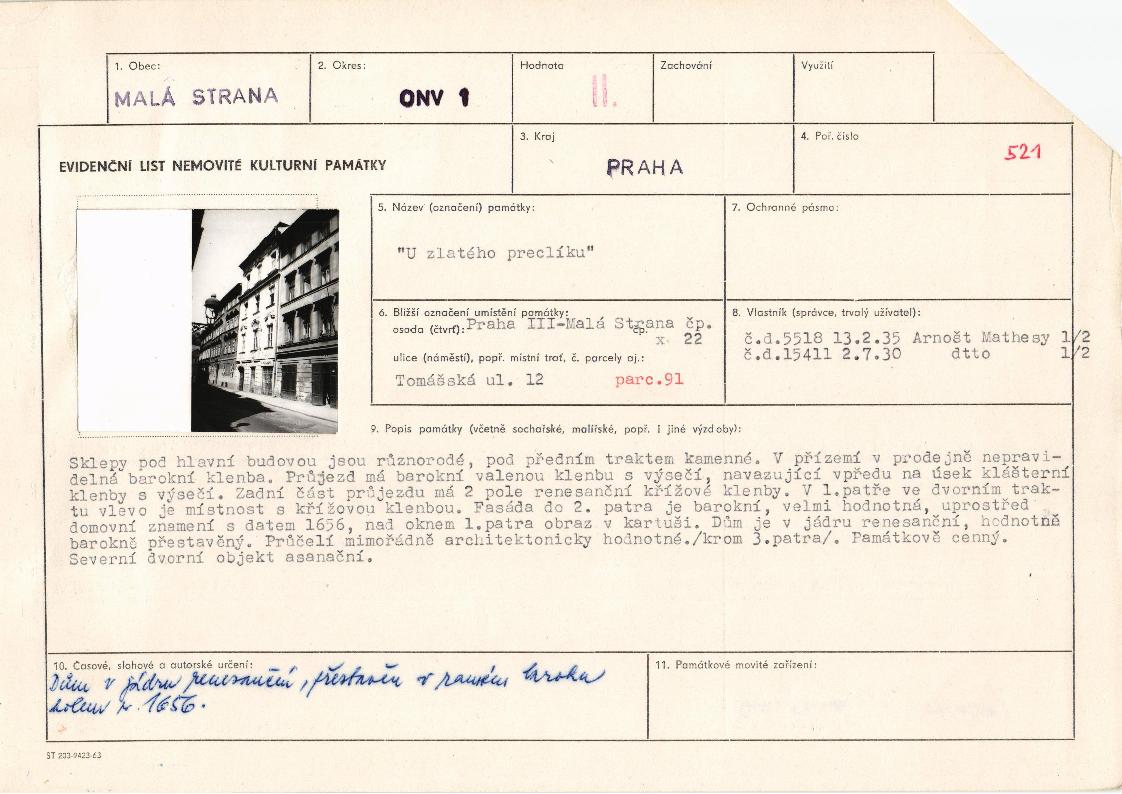 1. Obec:
MALÁ STRANA
2. Okres:
ONV 1
Hodnota
II.
Zachování
Využití
EVIDENČNÍ LIST NEMOVITÉ KULTURNÍ PAMÁTKY
3. Kraj
PRAHA
4. Poř. číslo
521
5. Název (označení) památky:
"U zlatého preclíku"
7. Ochranné pásmo:
6. Bližší označení umístění památky:
osada (čtvrť): Praha III-Malá Strana čp.
čp.
x 22
ulice (náměstí), popř. místní trať, č. parcely aj.:
Tomášská ul. 12 parc.91
8. Vlastník (správce, trvalý uživatel):
č.d.5518 13.2.35 Arnošt Mathesy 1/2
č.d.15411 2.7.30 dtto 1/2
9. Popis památky (včetně sochařské, malířské, popř. i jiné výzdoby):
Sklepy pod hlavní budovou jsou různorodé, pod předním traktem kamenné. V přízemí v prodejně nepravi-
delná barokní klenba. Průjezd má barokní valenou klenbu s výsečí, navazující vpředu na úsek klášterní
klenby s výsečí. Zadní část průjezdu má 2 pole renesanční křížové klenby. V 1.patře ve dvorním trak-
tu vlevo je místnost s křížovou klenbou. Fasáda do 2. patra je barokní, velmi hodnotná, uprostřed
domovní znamení s datem 1656, nad oknem 1.patra obraz v kartuši. Dům je v jádru renesanční, hodnotně
barokně přestavěný. Průčelí mimořádně architektonicky hodnotné./krom 3.patra/. Památkově cenný.
Severní dvorní objekt asanační.
10. Časové, slohové a autorské určení:
Dům v jádru renesanční, přestavěn v raném baroku
kolem r. 1656.
11. Památkové movité zařízení:
ST 233-9423-63